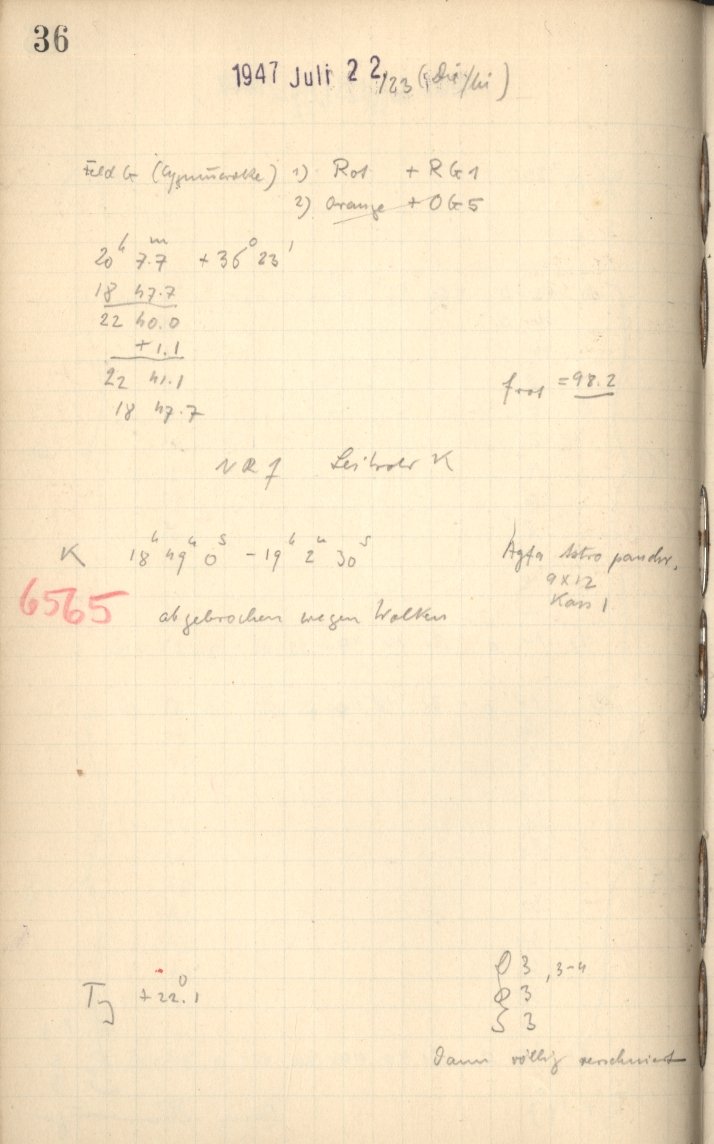 36
1947 Juli 22./23 (Die/Mi)
Feld G (Cygnuswolke) 1) Rot + RG1
2) Orange + OG5
20h 7.7m + 36° 23'
18 47.7
22 40.0
+1.1
22 41.1
18 47.7
f rot = 98.2
Leitrohr K
K 18h 49m 0s - 19h 2m 30s
Agfa Astro panchr.
9x12
Kass 1.
6565
abgebrochen wegen Wolken
3, 3-4
T +22.1°
3
S 3
Dann völlig verschmiert